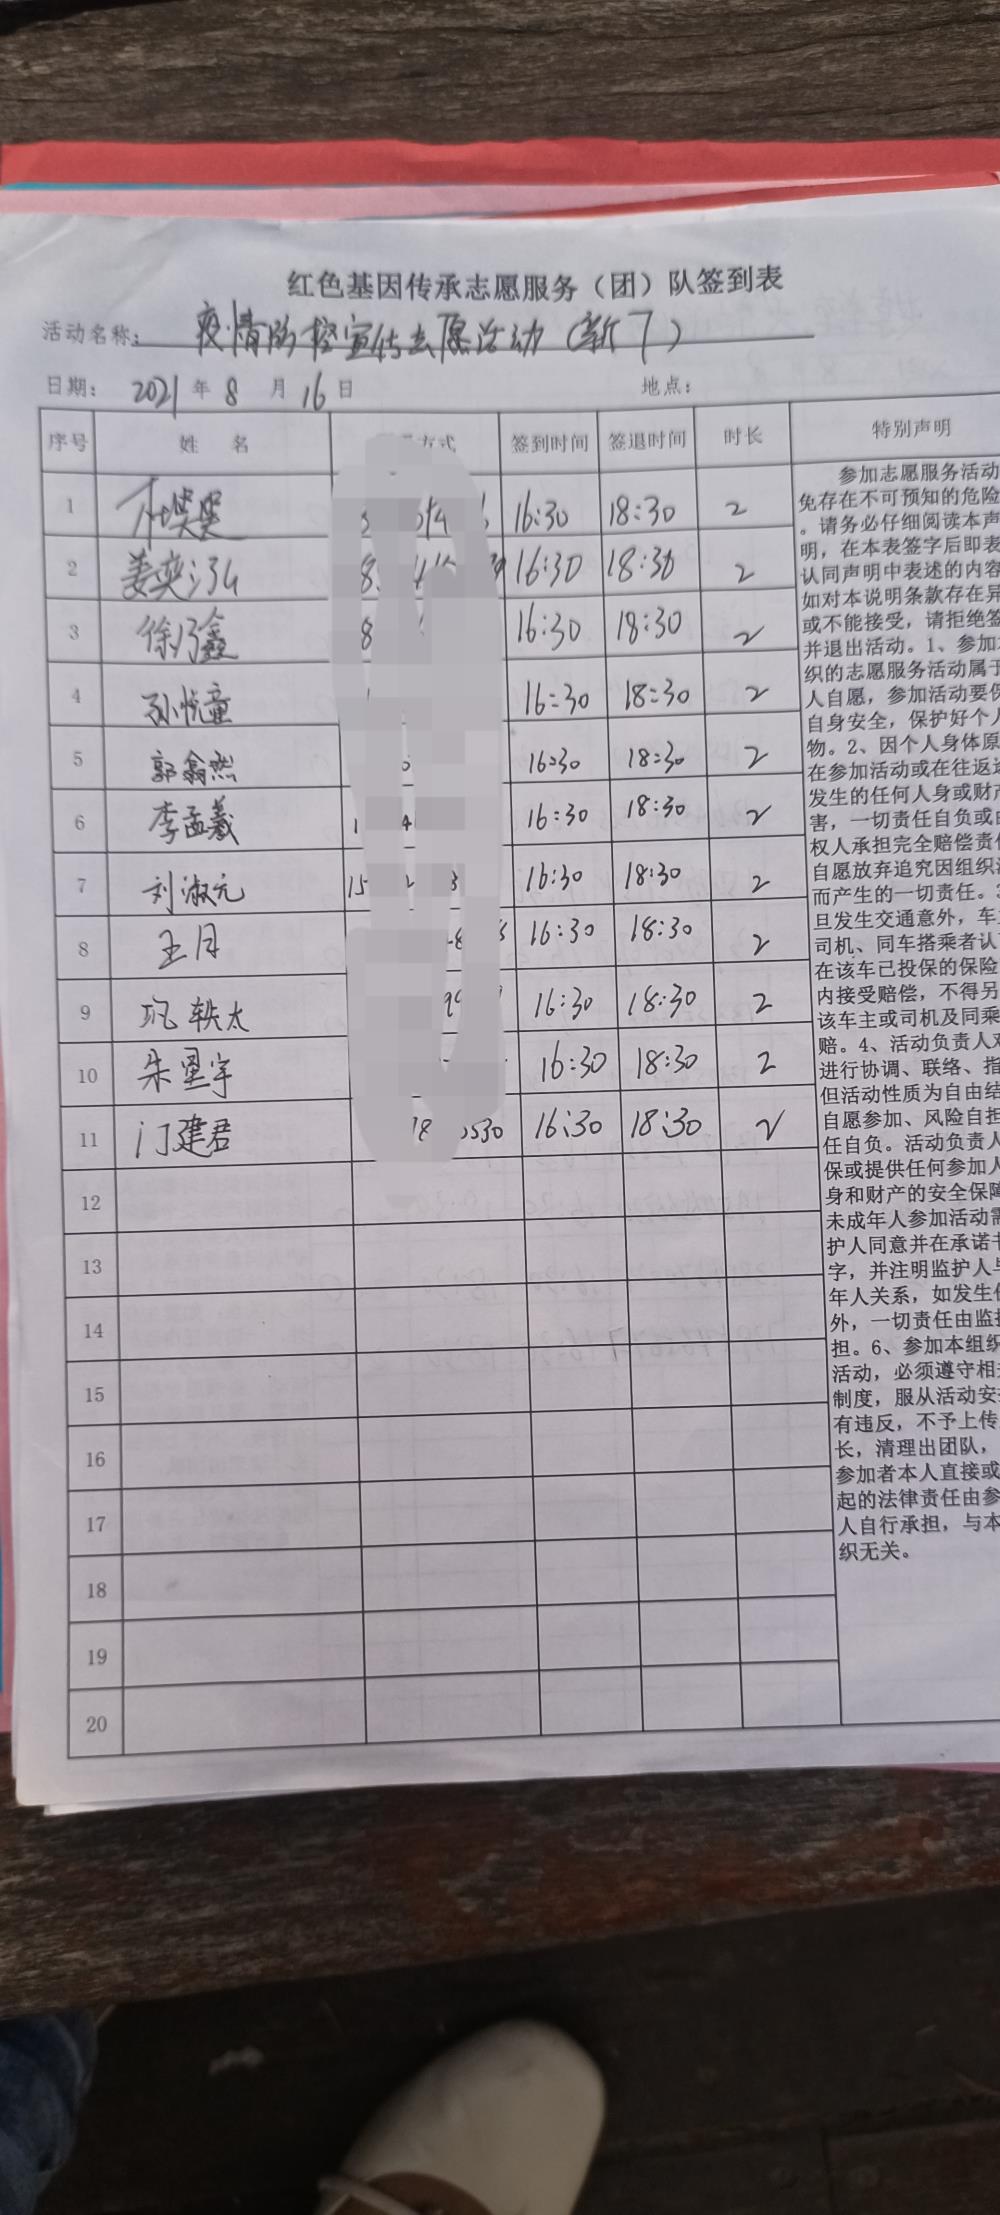 红色基因传承志愿服务（团）队签到表
活动名称：疫情防控宣传志愿活动（新7）
日期： 2021 年 8 月 16 日 地点：
序号 姓 名 方式 签到时间 签退时间 时长 特别声明
1 16:30 18:30 2
2 姜奕泓 16:30 18:30 2
3 徐乃鑫 16:30 18:30 2
4 孙悦童 16:30 18:30 2
5 郭翕然 16:30 18:30 2
6 李孟羲 16:30 18:30 2
7 刘淑元 16:30 18:30 2
8 王月 16:30 18:30 2
9 轶太 16:30 18:30 2
10 朱罡宇 16:30 18:30 2
11 门建君 16:30 18:30 2
12
13
14
15
16
17
18
19
20
参加志愿服务活动
免存在不可预知的危险
。请务必仔细阅读本声
明，在本表签字后即表
认同声明中表述的内容
如对本说明条款存在异
或不能接受，请拒绝签
并退出活动。1、参加
织的志愿服务活动属于
人自愿，参加活动要保
自身安全，保护好个人
物。2、因个人身体原
在参加活动或在往返途
发生的任何人身或财产
害，一切责任自负或由
权人承担完全赔偿责任
自愿放弃追究因组织活
而产生的一切责任。3
旦发生交通意外，车主
司机、同车搭乘者认
在该车已投保的保险
内接受赔偿，不得另
该车主或司机及同乘
赔。4、活动负责人对
进行协调、联络、指
但活动性质为自由结
自愿参加、风险自担
任自负。活动负责人
保或提供任何参加人
身和财产的安全保障
未成年人参加活动需
护人同意并在承诺书
字，并注明监护人与
年人关系，如发生任
外，一切责任由监护
担。6、参加本组织
活动，必须遵守相关
制度，服从活动安排
有违反，不予上传
长，清理出团队，
参加者本人直接或
起的法律责任由参
人自行承担，与本
织无关。